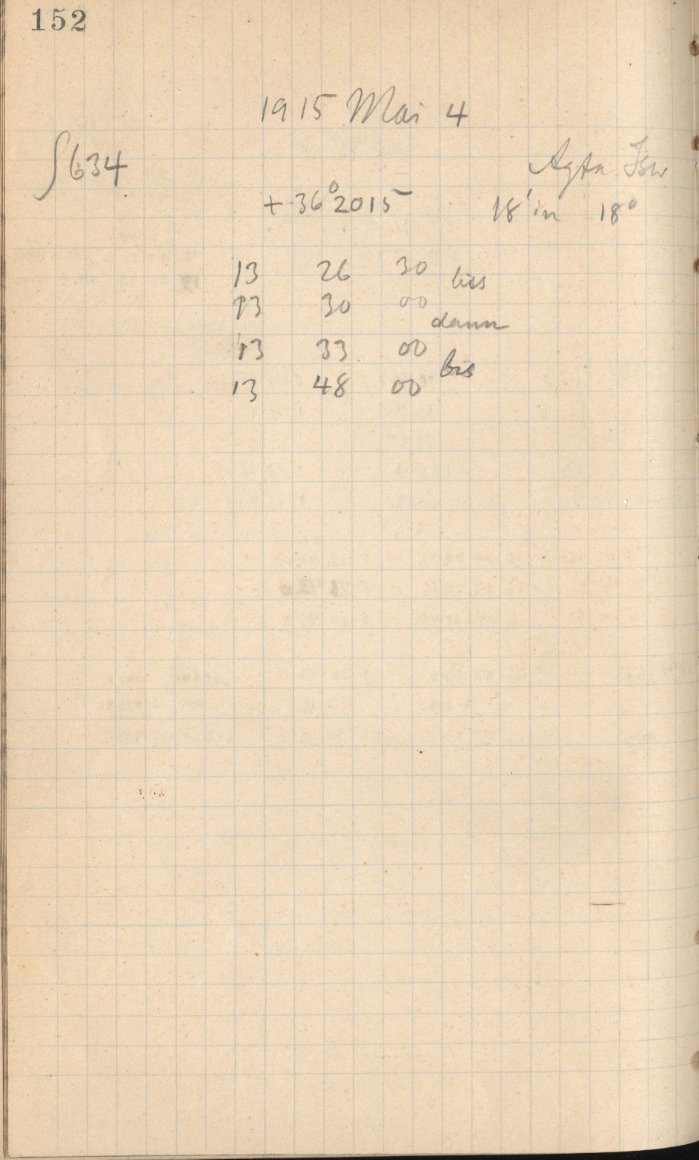 152
1915 Mai 4
∫634 Agfa Isw
+36°2015 18' in 18°
13 26 30 bis
13 30 00
dann
13 33 00
bis
13 48 00